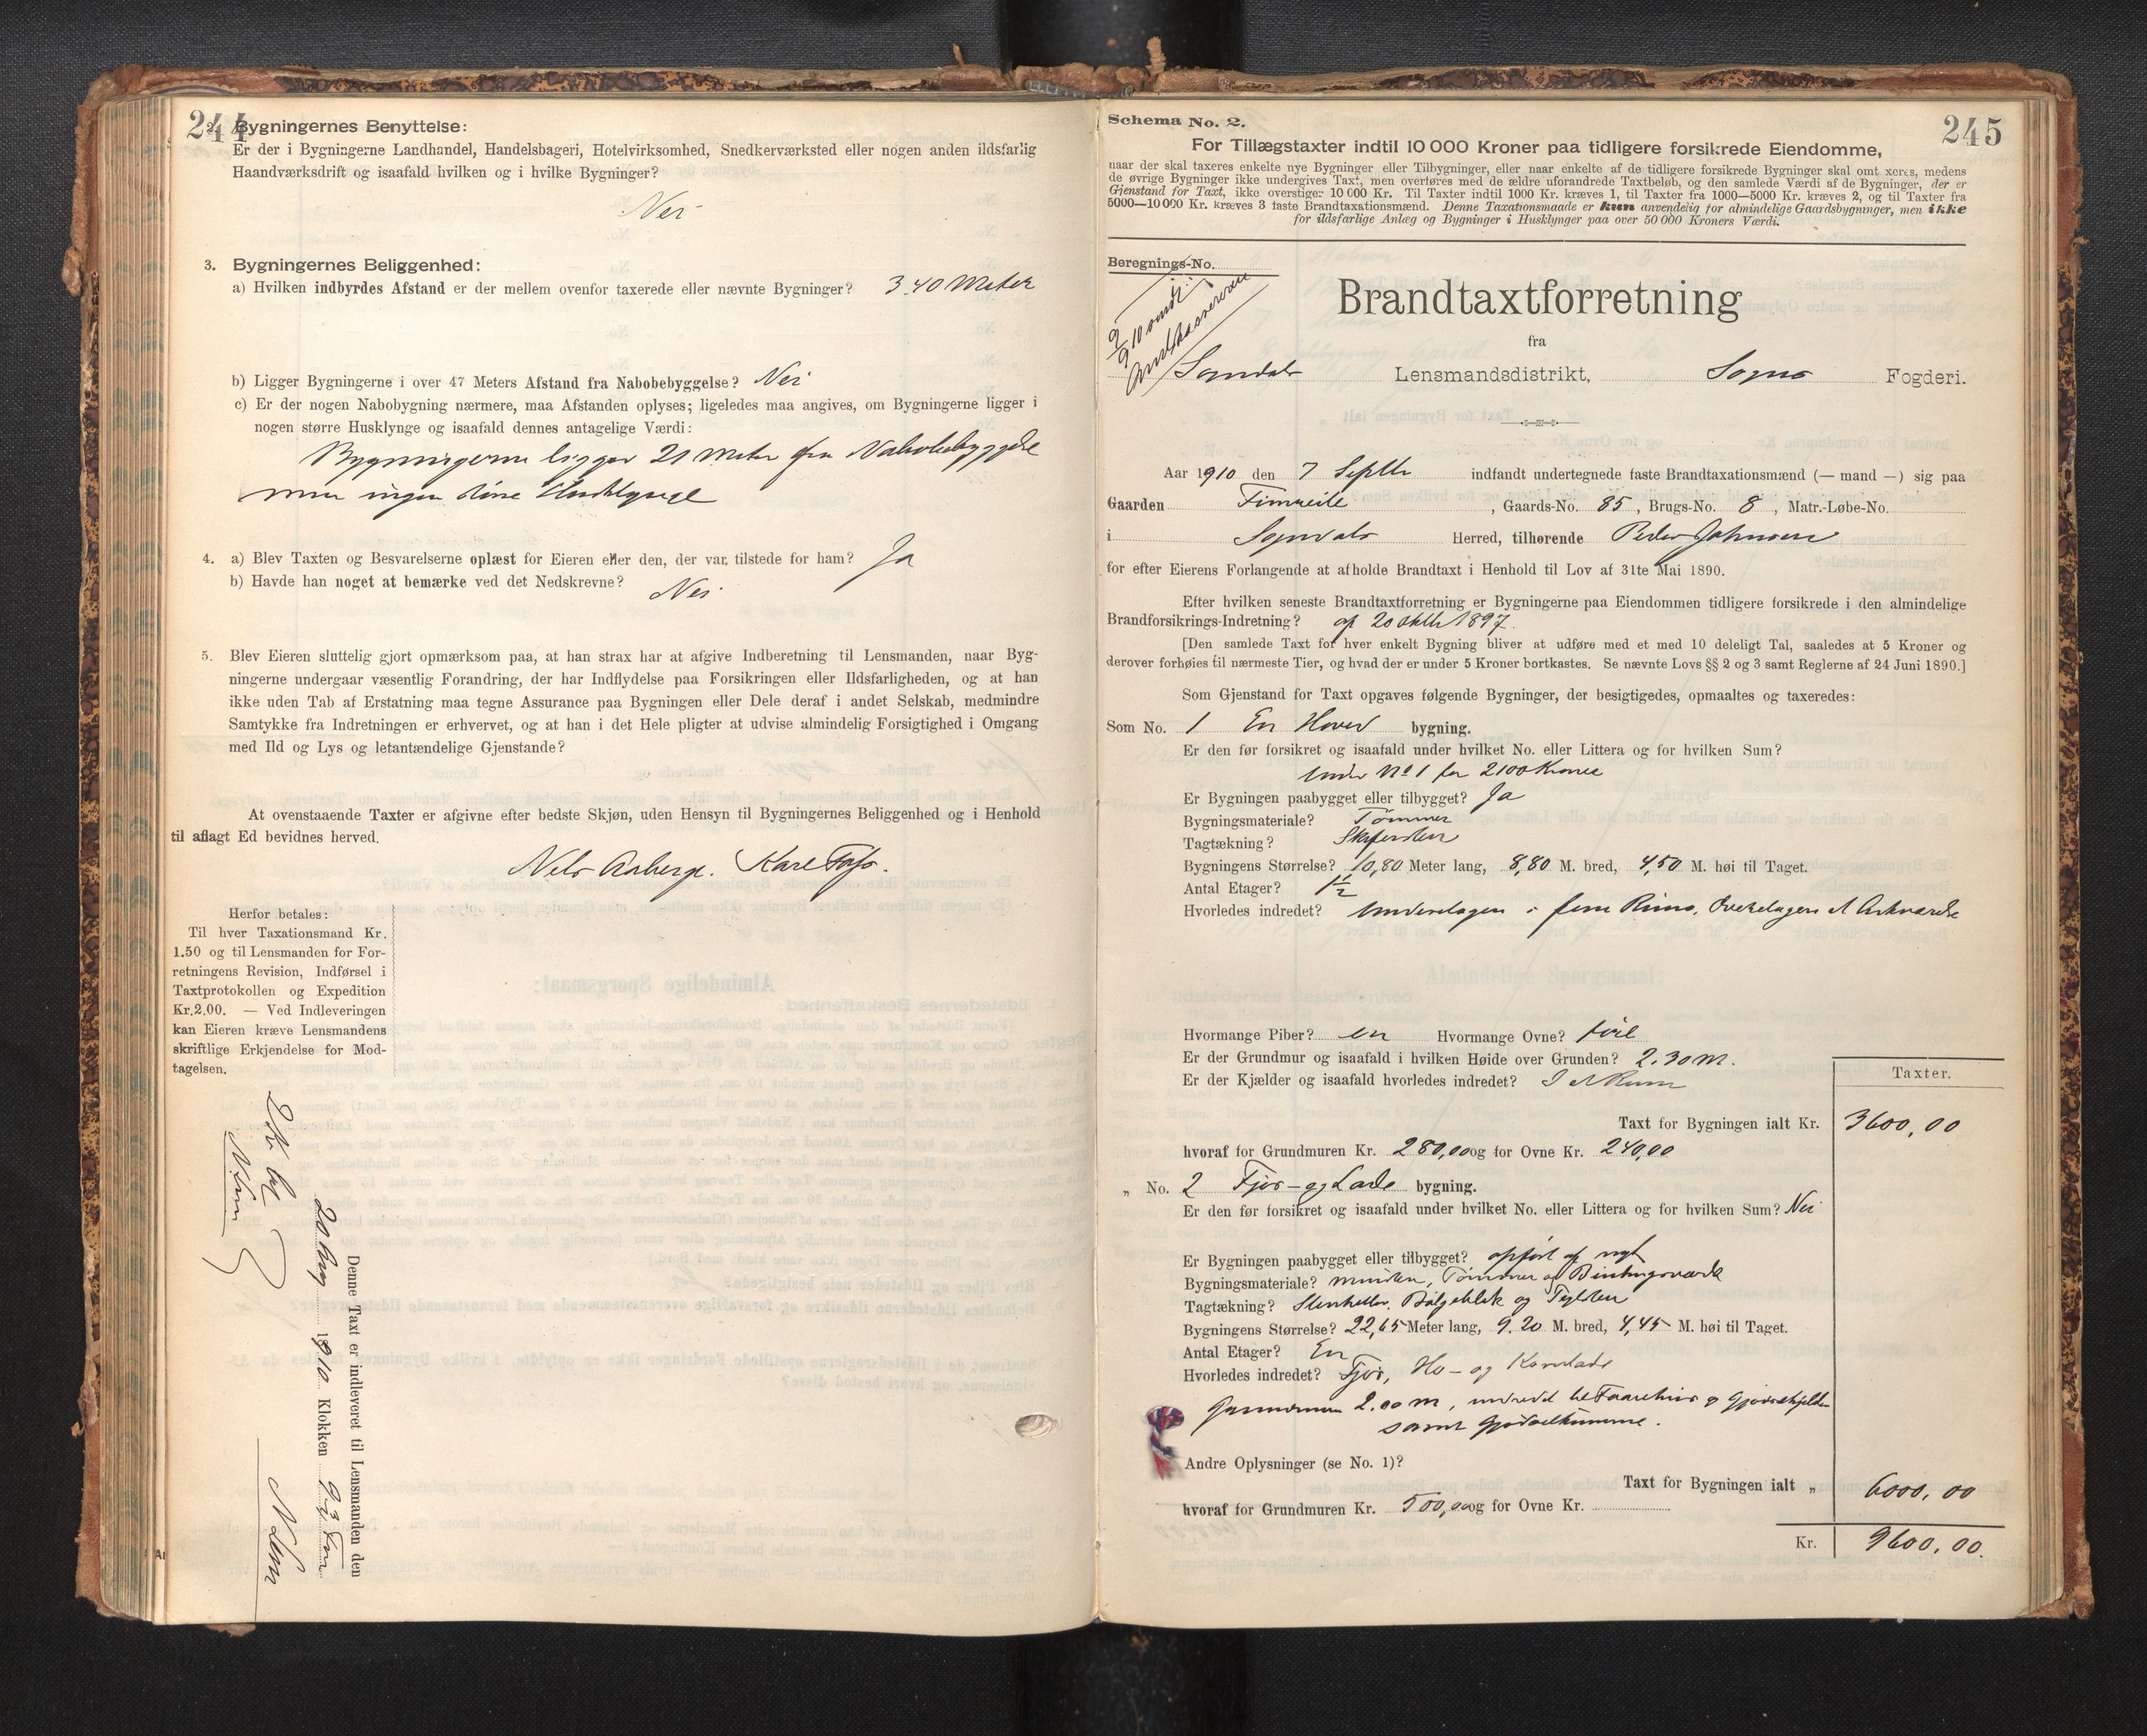 244
2. Bygningernes Benyttelse:
Er der i Bygningerne Landhandel, Handelsbageri, Hotelvirksomhed, Snedkerværksted eller nogen anden ildsfarlig
Haandværksdrift og isaafald hvilken og i hvilke Bygninger?
Nei
3. Bygningernes Beliggenhed:
a) Hvilken indbyrdes Afstand er der mellem ovenfor taxerede eller nævnte Bygninger? 3.40 Meter
b) Ligger Bygningerne i over 47 Meters Afstand fra Nabobebyggelse? Nei
c) Er der nogen Nabobygning nærmere, maa Afstanden oplyses; ligeledes maa angives, om Bygningerne ligger i
nogen større Husklynge og isaafald dennes antagelige Værdi:
Bygningerne ligger 21 Meter fra Nabobebyggelse
men ingen Husklynge
4. a) Blev Taxten og Besvarelserne oplæst for Eieren eller den, der var tilstede for ham? Ja
b) Havde han noget at bemærke ved det Nedskrevne? Nei
5. Blev Eieren sluttelig gjort opmærksom paa, at han strax har at afgive Indberetning til Lensmanden, naar Byg-
ningerne undergaar væsentlig Forandring, der har Indflydelse paa Forsikringen eller Ildsfarligheden, og at han
ikke uden Tab af Erstatning maa tegne Assurance paa Bygningen eller Dele deraf i andet Selskab, medmindre
Samtykke fra Indretningen er erhvervet, og at han i det Hele pligter at udvise almindelig Forsigtighed i Omgang
med Ild og Lys og letantændelige Gjenstande?
At ovenstaaende Taxter er afgivne efter bedste Skjøn, uden Hensyn til Bygningernes Beliggenhed og i Henhold
til aflagt Ed bevidnes herved.
Nels Aaberge. Karl
Herfor betales:
Til hver Taxationsmand Kr.
1.50 og til Lensmanden for For-
retningens Revision, Indførsel i
Taxtprotokollen og Expedition
Kr. 2.00. — Ved Indleveringen
kan Eieren kræve Lensmandens
skriftlige Erkjendelse for Mod-
tagelsen.
Denne Taxt er indleveret til Lensmanden den
1910 Klokken
245
Schema No. 2.
For Tillægstaxter indtil 10 000 Kroner paa tidligere forsikrede Eiendomme,
naar der skal taxeres enkelte nye Bygninger eller Tilbygninger, eller naar enkelte af de tidligere forsikrede Bygninger skal omtaxeres, medens
de øvrige Bygninger ikke undergives Taxt, men overføres med de ældre uforandrede Taxtbeløb, og den samlede Værdi af de Bygninger, der er
Gjenstand for Taxt, ikke overstiger 10 000 Kr. Til Taxter indtil 1000 Kr. kræves 1, til Taxter fra 1000—5000 Kr. kræves 2, og til Taxter fra
5000—10 000 Kr. kræves 3 faste Brandtaxationsmænd. Denne Taxationsmaade er kun anvendelig for almindelige Gaardsbygninger, men ikke
for ildsfarlige Anlæg og Bygninger i Husklynger paa over 50 000 Kroners Værdi.
Beregnings-No.
Brandtaxtforretning
fra
Sogndals Lensmandsdistrikt, Sogns Fogderi.
Aar 1910 den 7 Septbr indfandt undertegnede faste Brandtaxationsmænd (— mand —) sig paa
Gaarden Fimreite, Gaards-No. 85, Brugs-No. 8, Matr.-Løbe-No.
i Sogndals Herred, tilhørende Peder Johnsen
for efter Eierens Forlangende at afholde Brandtaxt i Henhold til Lov af 31te Mai 1890.
Efter hvilken seneste Brandtaxtforretning er Bygningerne paa Eiendommen tidligere forsikrede i den almindelige
Brandforsikrings-Indretning? af 20 oktbr 1897.
[Den samlede Taxt for hver enkelt Bygning bliver at udføre med et med 10 deleligt Tal, saaledes at 5 Kroner og
derover forhøies til nærmeste Tier, og hvad der er under 5 Kroner bortkastes. Se nævnte Lovs §§ 2 og 3 samt Reglerne af 24 Juni 1890.]
Som Gjenstand for Taxt opgaves følgende Bygninger, der besigtigedes, opmaaltes og taxeredes:
Som No. 1 En Hoved bygning.
Er den før forsikret og isaafald under hvilket No. eller Littera og for hvilken Sum?
under No 1 for 2100 Kroner
Er Bygningen paabygget eller tilbygget? Ja
Bygningsmateriale? Tømmer
Tagtækning? Skifersten
Bygningens Størrelse? 10,80 Meter lang, 8,80 M. bred, 4,50 M. høi til Taget.
Antal Etager? 1 1/2
Hvorledes indredet? Underetagen i fem Rum, Overetagen
Hvormange Piber? en Hvormange Ovne?
Er der Grundmur og isaafald i hvilken Høide over Grunden? 2.30 m.
Er der Kjælder og isaafald hvorledes indredet? Rum
Taxter.
Taxt for Bygningen ialt Kr. 3600,00
hvoraf for Grundmuren Kr. 280,00 og for Ovne Kr. 240,00
„ No. 2 Fjøs- og Lade bygning.
Er den før forsikret og isaafald under hvilket No. eller Littera og for hvilken Sum? Nei
Er Bygningen paabygget eller tilbygget? opført af nyt
Bygningsmateriale? mursten, Tømmer og Bindingsværk
Tagtækning? Stenheller, Bølgeblik og Teglsten
Bygningens Størrelse? 22,65 Meter lang, 9.20 M. bred, 4,45 M. høi til Taget.
Antal Etager? En
Hvorledes indredet? Fjøs, Hø- og Kornlade
Grundmuren 2.00 m, indredet til Faarehus og Gjødselkjelder
samt Gjødselkumme.
Andre Oplysninger (se No. 1)?
Taxt for Bygningen ialt „ 6000,00
hvoraf for Grundmuren Kr. 500,00 og for Ovne Kr.
Kr. 9600,00.